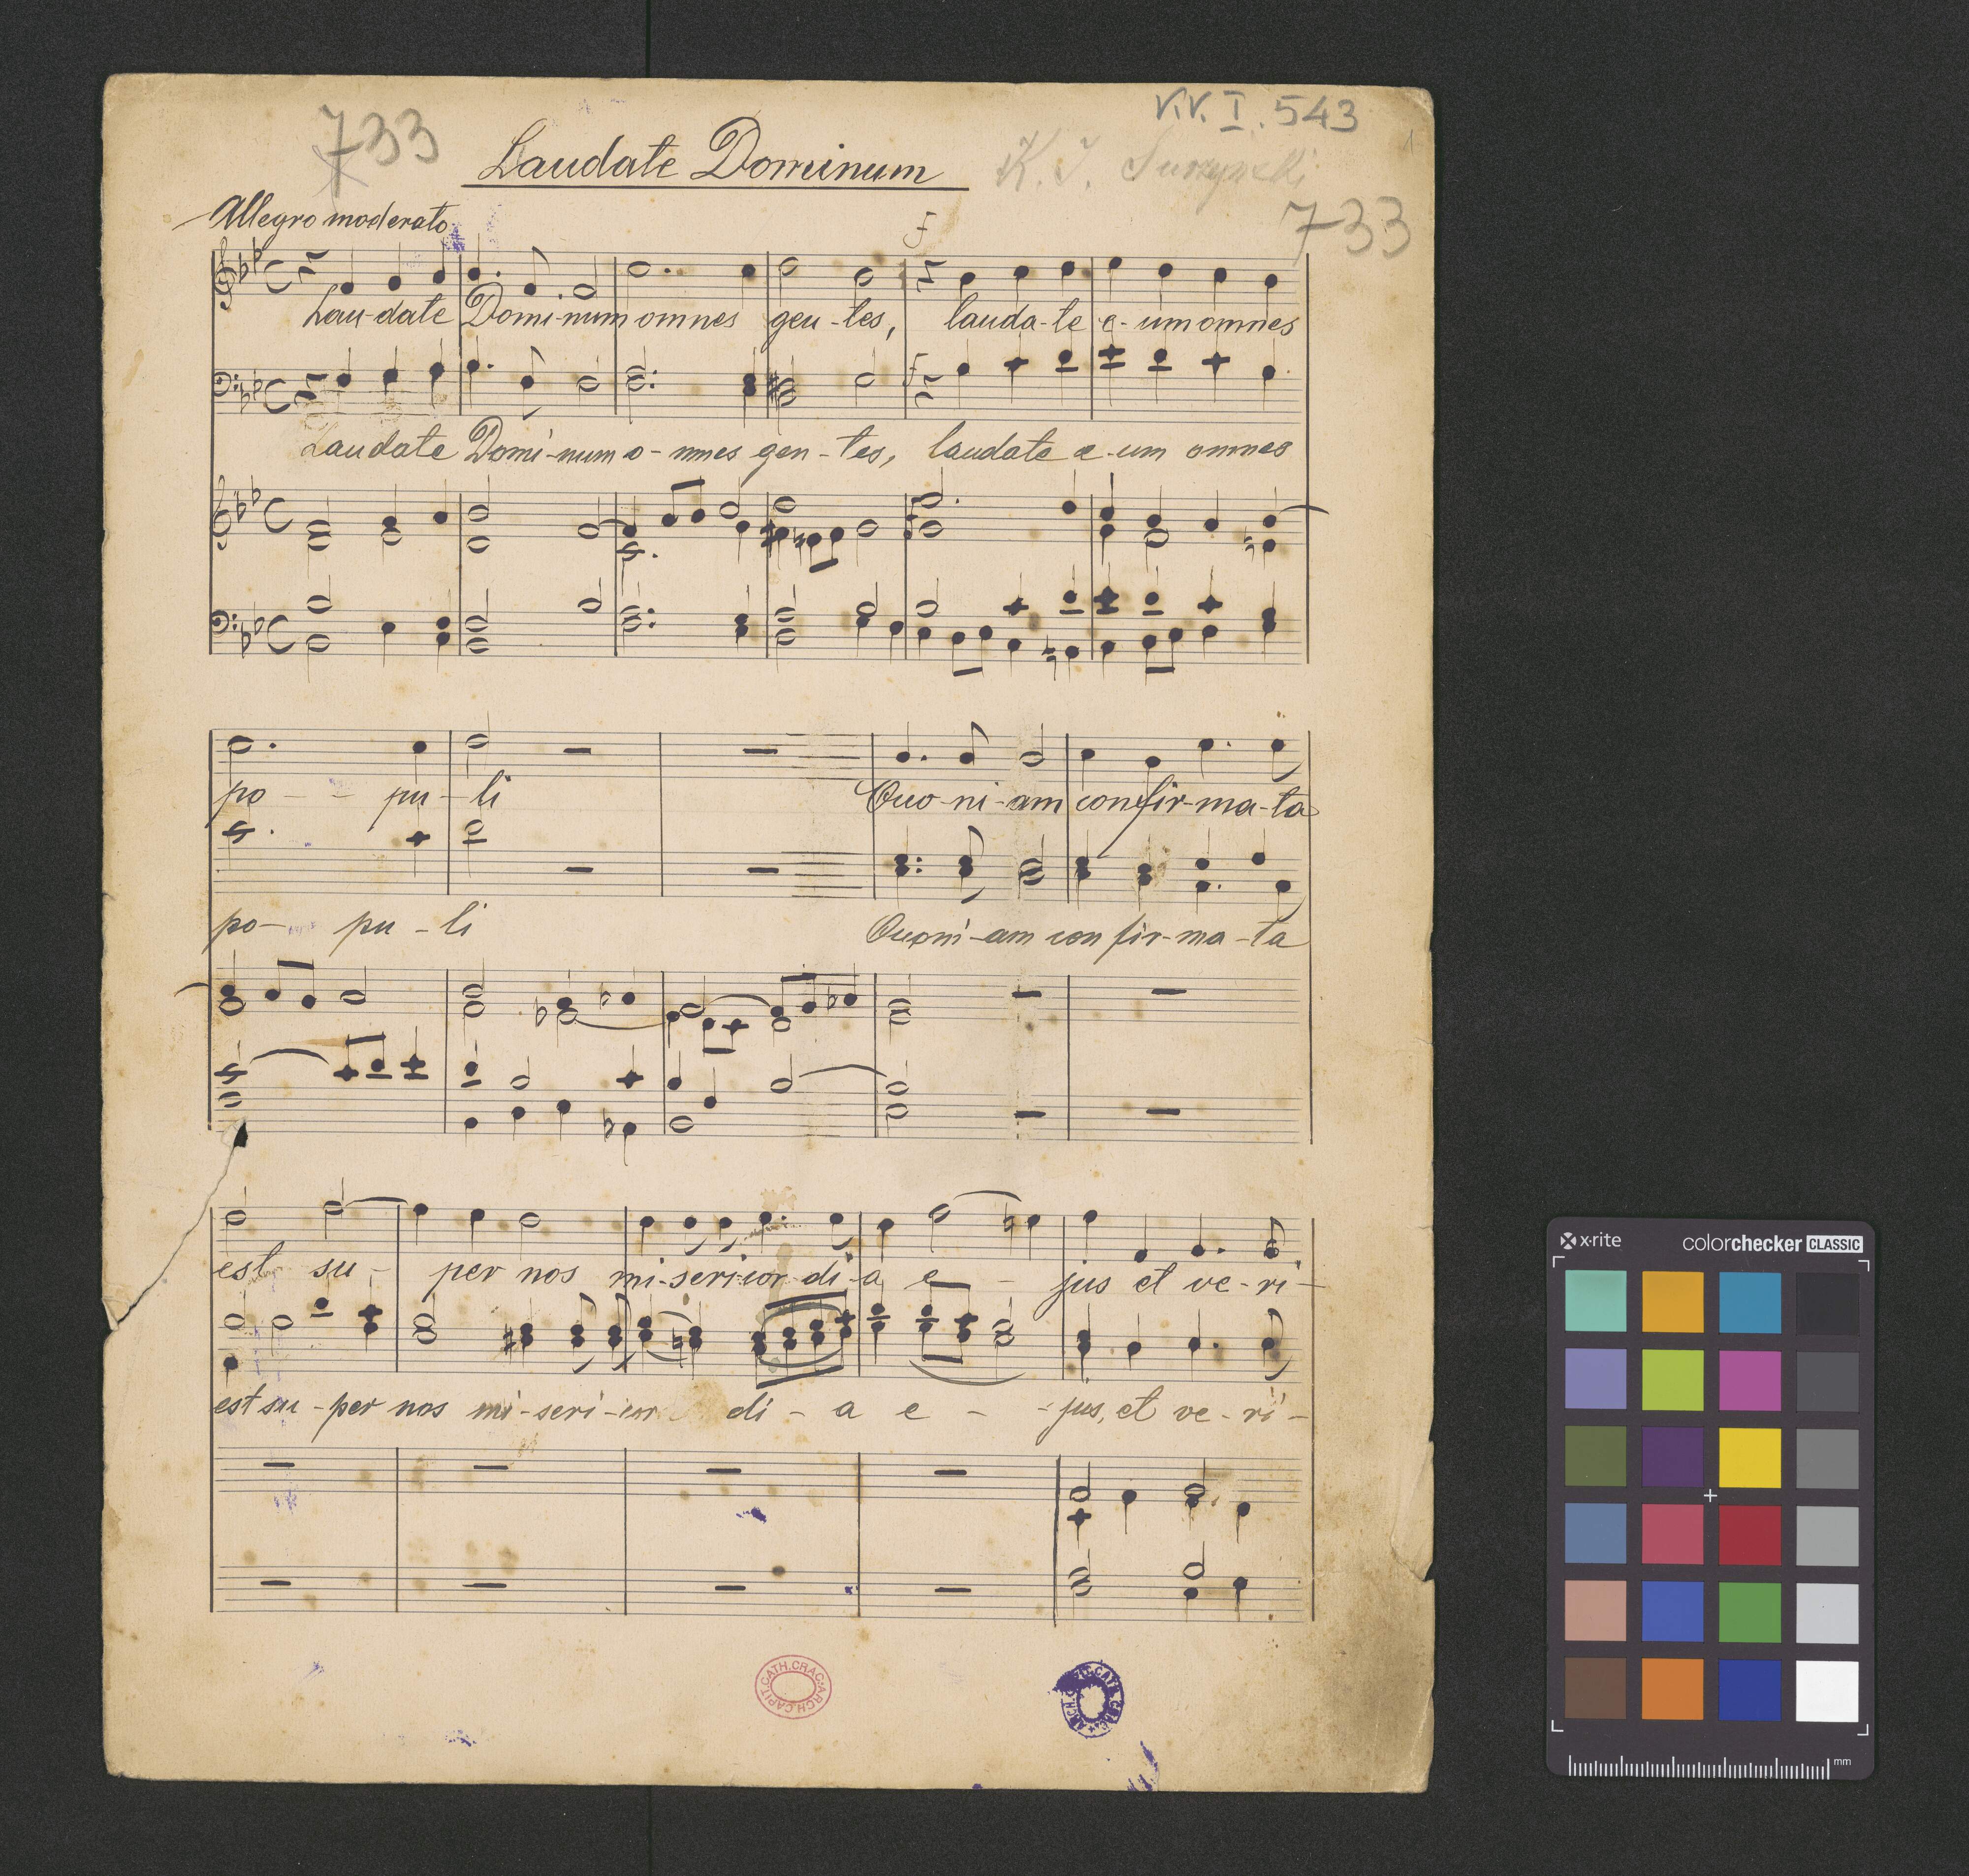 V.V. I. 543
733
1
Laudate Dominum
K. I. Surzyński
733
Allegro moderato
f
Lau-date Domi-num omnes gen-tes, lauda-te e-um omnes
f
Laudate Domi-num o-mnes gen-tes, laudate e-um omnes
po - - pu - li Quo-ni-am confir-ma-ta
po - pu - li Quoni-am con fir-ma-ta
est su - per nos mi-sericor-di-a e - jus et ve-ri-
est su-per nos mi-seri-cor di - a e - - jus, et ve-ri-
ARCH.CAPIT.CATH.CRAC.
ARCH.CAPIT.CATH.CRAC.
x·rite colorchecker CLASSIC
mm